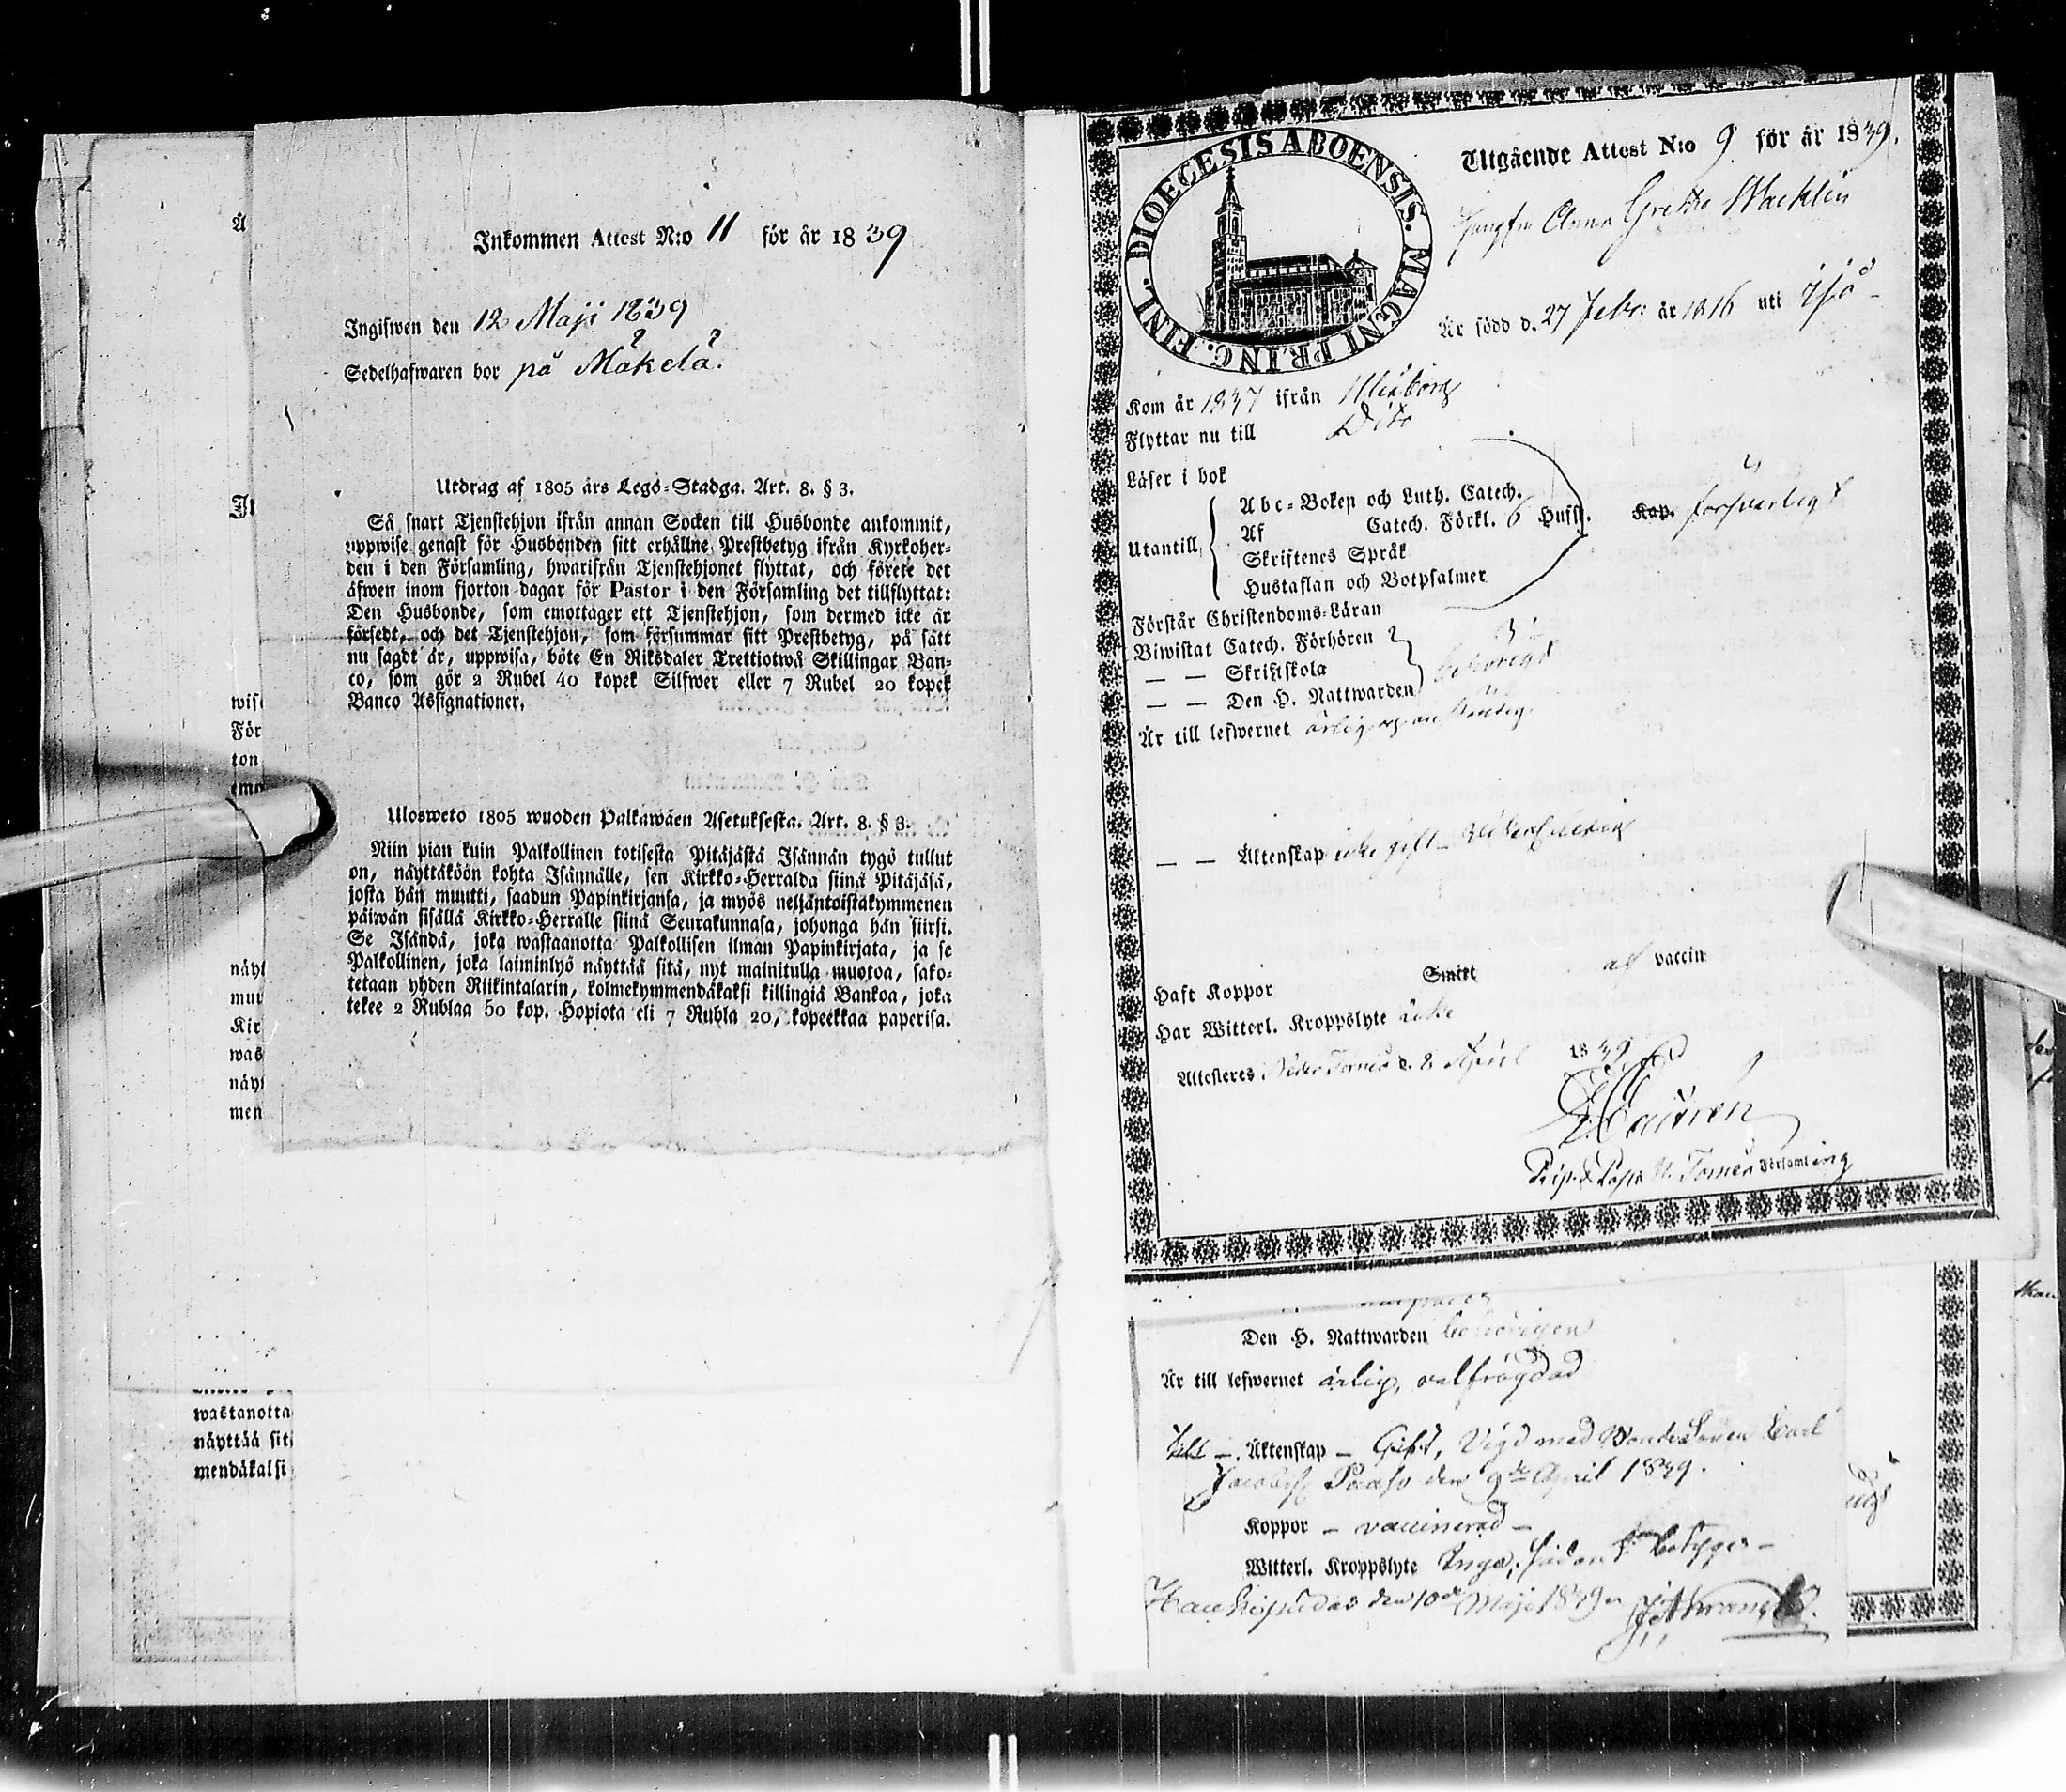 Inkommen Attest N:o 11 för år 1839
Ingifwen den 12 Maji 1839
Sedelhafwaren bor på Mäkelä.
Utdrag af 1805 års Lego-Stadga. Art. 8. § 3.
Så snart Tjenstehjon ifrån annan Socken till Husbonde ankommit,
uppwise genast för Husbonden sitt erhållne Prestbetyg ifrån Kyrkoher-
den i den Församling, hwarifrån Tjenstehjonet flyttat, och förete det
äfwen inom fjorton dagar för Pastor i den Församling det tillflyttat:
Den Husbonde, som emottager ett Tjenstehjon, som dermed icke är
försedt, och det Tjenstehjon, som försummar sitt Prestbetyg, på sätt
nu sagdt är, uppwisa, böte En Riksdaler Trettiotwå Skillingar Ban-
co, som gör 2 Rubel 40 kopek Silfwer eller 7 Rubel 20 kopek
Banco Assignationer.
Ulosweto 1805 wuoden Palkawäen Asetuksesta. Art. 8. § 3.
Niin pian kuin Palkollinen totisesta Pitäjästä Isännän tygö tullut
on, näyttäköön kohta Isännälle, sen Kirkko-Herralda siinä Pitäjäsä,
josta hän muutti, saadun Papinkirjansa, ja myös neljäntoistakymmenen
päiwän sisällä Kirkko-Herralle siinä Seurakunnasa, johonga hän siirsi.
Se Isändä, joka wastaanotta Palkollisen ilman Papinkirjata, ja se
Palkollinen, joka laiminlyö näyttää sitä, nyt mainitulla muotoa, sako-
tetaan yhden Riikintalarin, kolmekymmendäkaksi killingiä Bankoa, joka
tekee 2 Rublaa 50 kop. Hopiota eli 7 Rubla 20, kopeekkaa paperisa.
wastanotta
näyttää sit
mendäkalsi
DIOECESIS ABOENSIS. MAGNI PRINC. FINL.
Utgående Attest N:o 9 för år 1839.
Jungfru Anna Greta Wacklin
Är född d. 27 Febr: år 1816 uti Ijo
Kom år 1837 ifrån Uleåborg
Flyttar nu till Dito
Läser i bok
Utantill,
Abc-Boken och Luth. Catech.
Af Catech. Förkl. 6 Hufst. Kap. försvarligt
Skriftenes Språk
Hustaflan och Botpsalmer
Förstår Christendoms-Läran
Biwistat Catech. Förhören
— — Skriftskola behörigt
— — Den H. Nattwarden
Är till lefwernet ärlig och anständig
— — Äktenskap icke gift
Haft Koppor Smitt af vaccin
Har Witterl. Kroppslyte icke
Attesteres Neder Torneå d. 8 April 1839
Församling
Den H. Nattwarden behörigen
Är till lefwernet ärlig, välfrägdad
till — Äktenskap — Gift, Vigd med Bonde Sonen Carl
Jacobss. Paaso den 9de April 1839.
Koppor — vaccinerad —
Witterl. Kroppslyte Inga,
Haukipudas den 10de Maji 1839